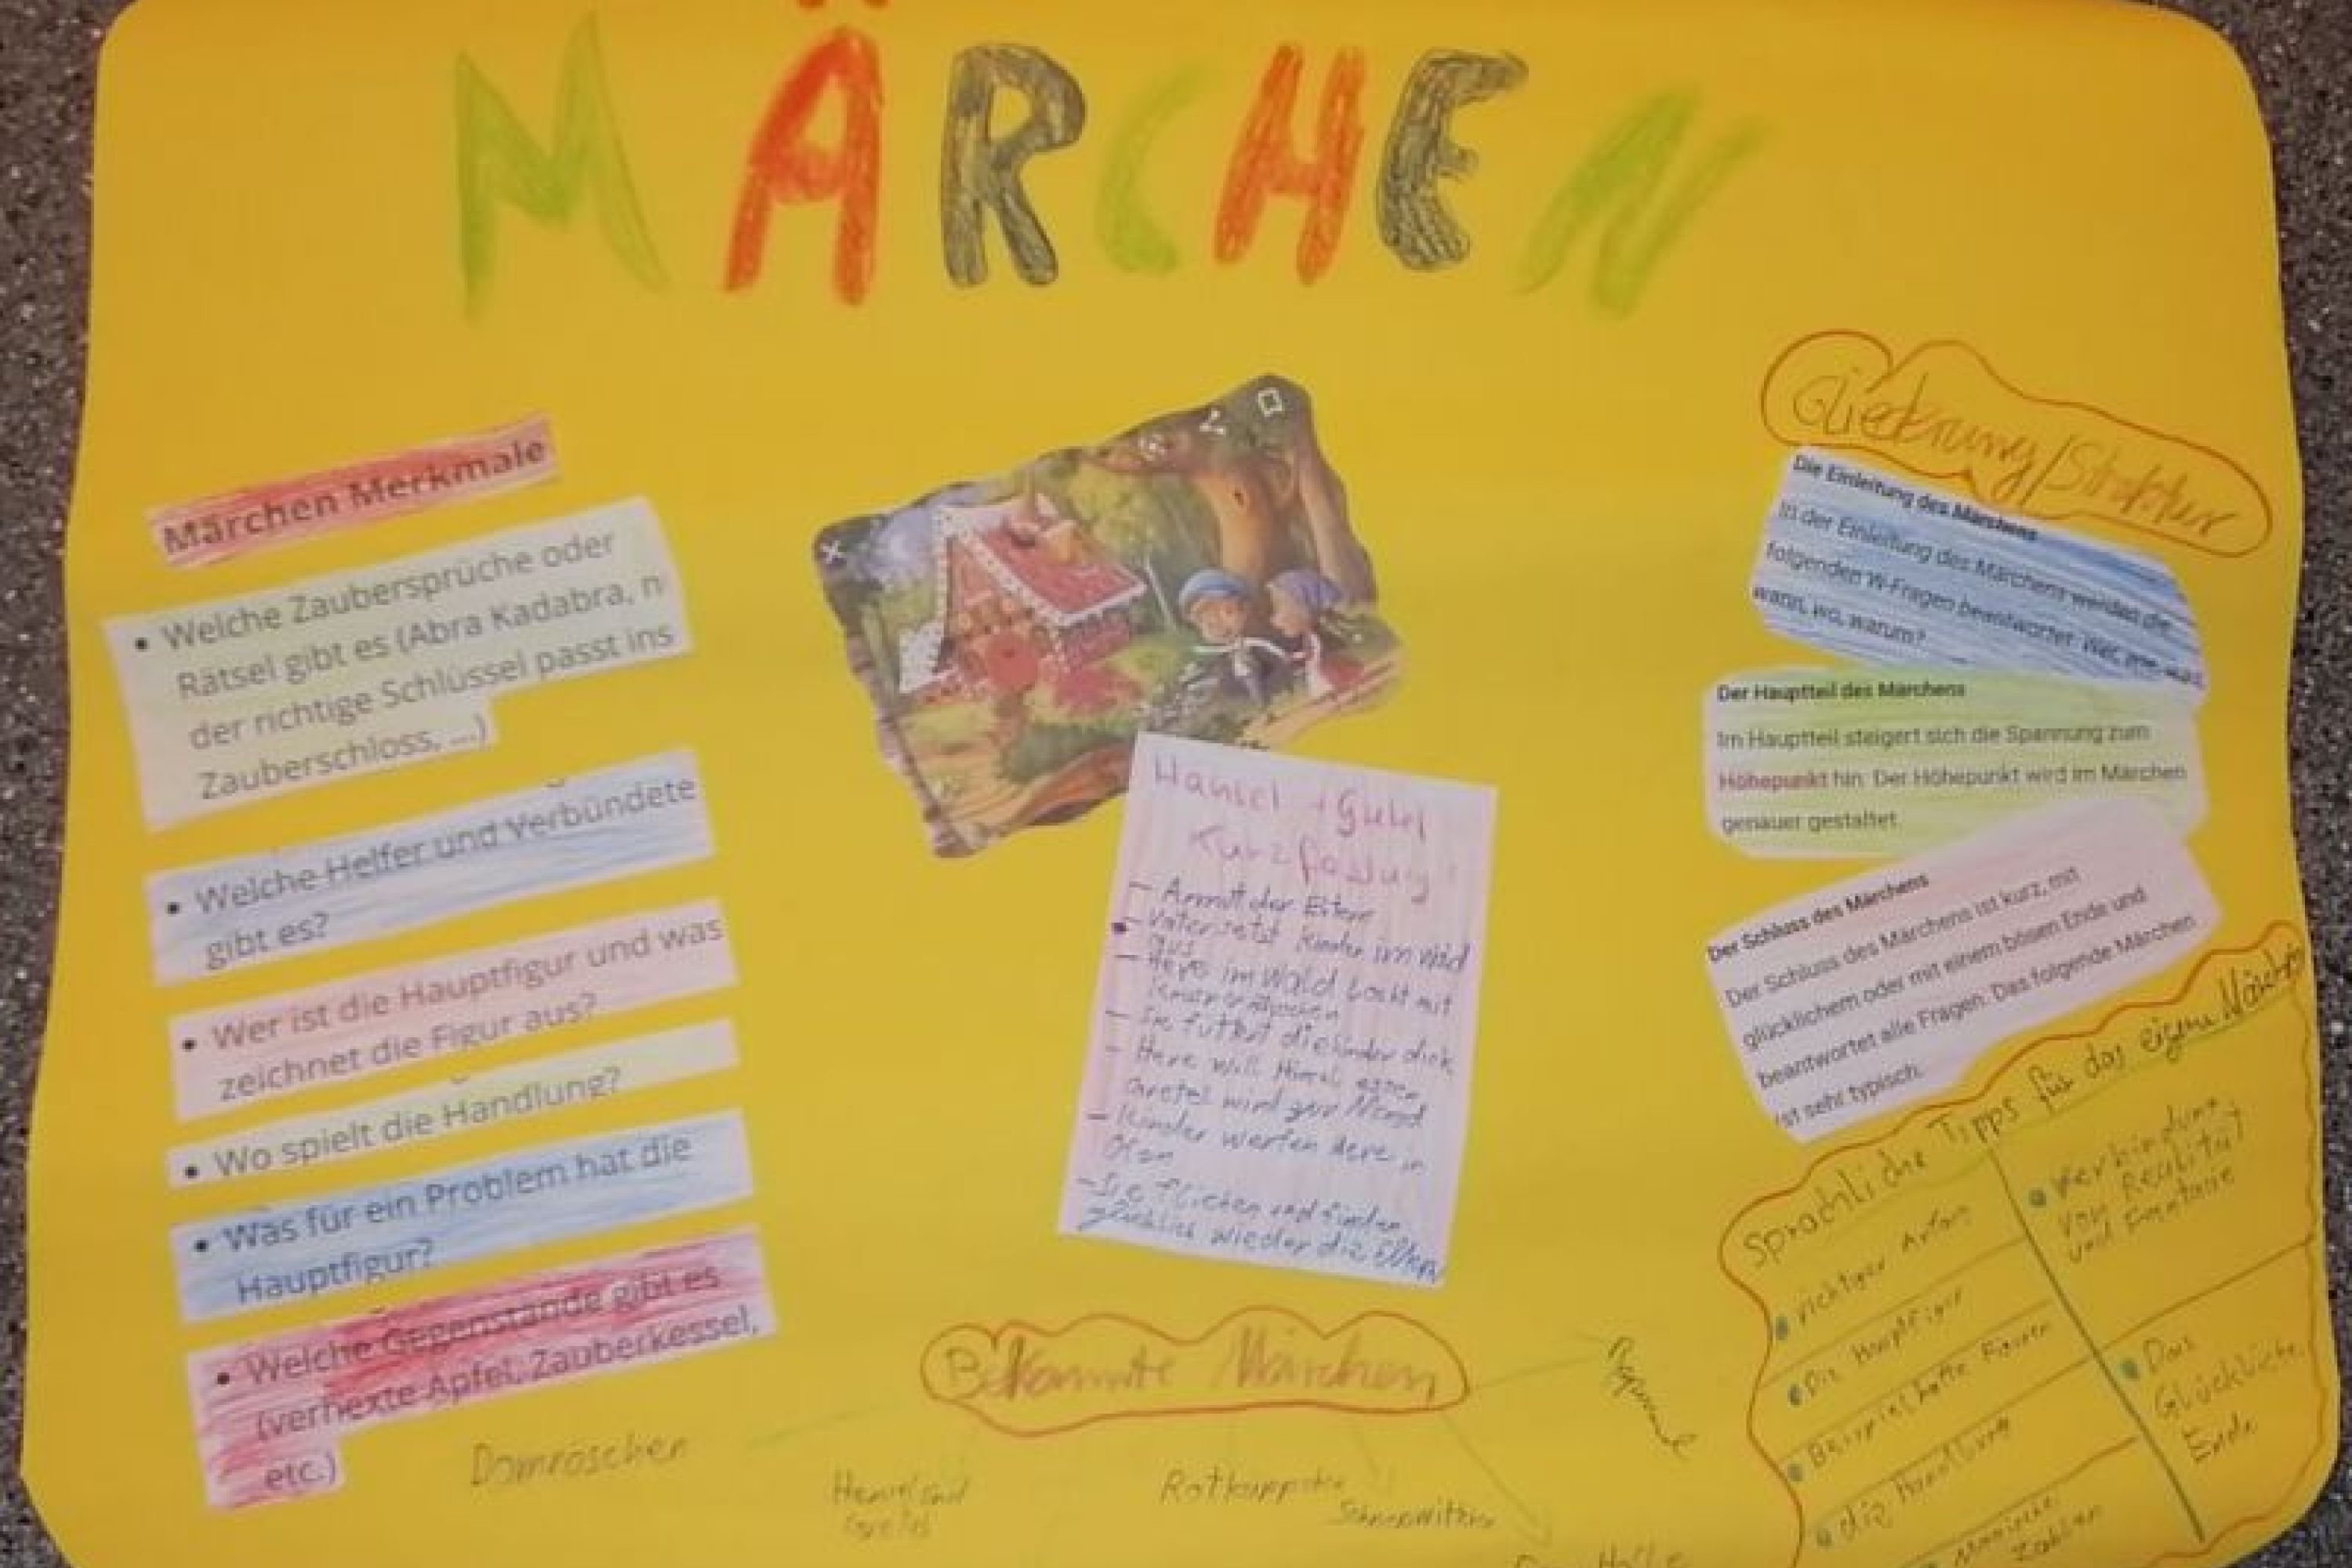 MÄRCHEN
Märchen Merkmale
• Welche Zaubersprüche oder
Rätsel gibt es (Abra Kadabra, n
der richtige Schlüssel passt ins
Zauberschloss, ...)
• Welche Helfer und Verbündete
gibt es?
• Wer ist die Hauptfigur und was
zeichnet die Figur aus?
• Wo spielt die Handlung?
• Was für ein Problem hat die
Hauptfigur?
• Welche Gegenstände gibt es
(verhexte Äpfel, Zauberkessel,
etc.)
Hänsel + Gretel
Kurzfassung:
- Armut der Eltern
- Vater setzt Kinder im Wald
aus
- Hexe im Wald lockt mit
- Sie füttert die Kinder dick
- Hexe will Hänsel essen
Gretel wird zur Magd
- Kinder werfen Hexe in
Ofen
- Sie fliehen und finden
glücklich wieder die Eltern
Bekannte Märchen
Dornröschen
Hänsel und
Gretel
Rotkäppchen
Schneewittchen
Rapunzel
Gliederung/Struktur
Die Einleitung des Märchens
In der Einleitung des Märchens werden die
folgenden W-Fragen beantwortet: Wer, wie, was,
wann, wo, warum?
Der Hauptteil des Märchens
Im Hauptteil steigert sich die Spannung zum
Höhepunkt hin. Der Höhepunkt wird im Märchen
genauer gestaltet.
Der Schluss des Märchens
Der Schluss des Märchens ist kurz, mit
glücklichem oder mit einem bösen Ende und
beantwortet alle Fragen. Das folgende Märchen
ist sehr typisch.
Sprachliche Tipps für das eigene Märchen
• richtiger Anfang
• Die Hauptfigur
• Beispielhafte Figuren
• die Handlung
• Magische
Zahlen
• Verbindung
von Realität
und Fantasie
• Das
Glückliche
Ende